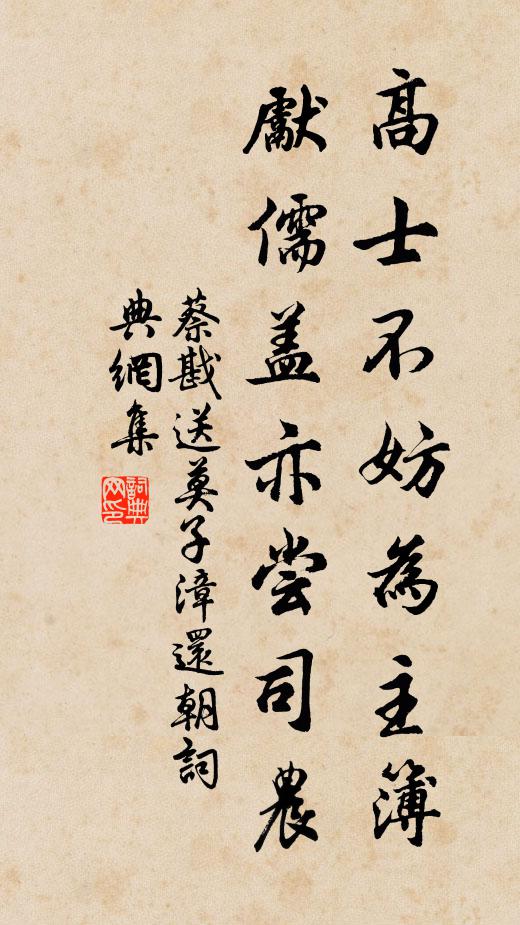 高士不妨為主簿
獻儒盖亦尝司農
蔡戡送莫子漳還朝詞
典網集
詞典
网印